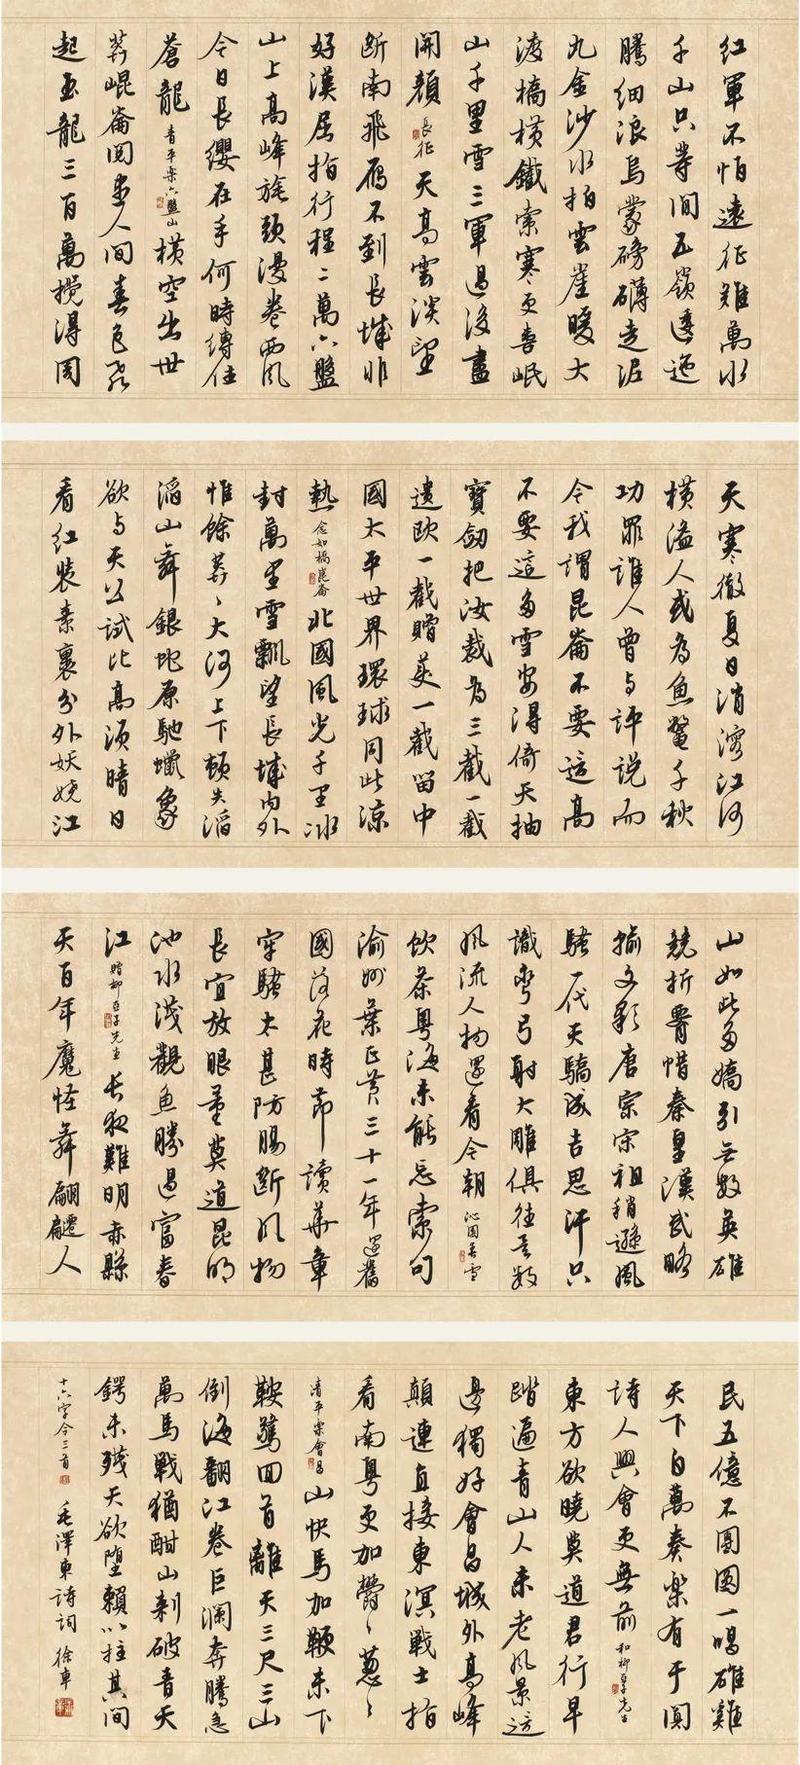 紅軍不怕遠征難萬水
千山只等閒五嶺逶迤
騰細浪烏蒙磅礴走泥
九金沙水拍雲崖暖大
渡橋橫鐵索寒更喜岷
山千里雪三軍過後盡
開顏 長征 天高雲淡望
斷南飛雁不到長城非
好漢屈指行程二萬六盤
山上高峰旄頭漫卷西風
今日長纓在手何時縛住
蒼龍 清平樂六盤山 橫空出世
莽崐崙閱盡人間春色飛
起玉龍三百萬攪得周
天寒徹夏日消溶江河
橫溢人或為魚鱉千秋
功罪誰人曾與評說而
今我謂昆崙不要這高
不要這多雪安得倚天抽
寶劍把汝裁為三截一截
遺歐一截贈美一截留中
國太平世界環球同此涼
熱 念奴嬌崑崙 北國風光千里冰
封萬里雪飄望長城內外
惟餘莽々大河上下頓失滔
滔山舞銀蛇原馳蠟象
欲與天公試比高須晴日
看紅裝素裹分外妖嬈江
山如此多嬌引無數英雄
競折腰惜秦皇漢武略
輸文彩唐宗宋祖稍遜風
騷一代天驕成吉思汗只
識彎弓射大雕俱往矣數
風流人物還看今朝 沁園春雪
飲茶粵海未能忘索句
渝州葉正黃三十一年還舊
國落花時節讀華章
牢騷太甚防腸斷風物
長宜放眼量莫道昆明
池水淺觀魚勝過富春
江 贈柳亞子先生 長夜難明赤縣
天百年魔怪舞翩躚人
民五億不團圓一唱雄雞
天下白萬奏樂有于闐
詩人興會更無前 和柳亞子先生
東方欲曉莫道君行早
踏遍青山人未老風景這
邊獨好會昌城外高峰
顛連直接東溟戰士指
看南粵更加鬱々蔥々
清平樂會昌 山快馬加鞭未下
鞍驚回首離天三尺三山
倒海翻江卷巨瀾奔騰急
萬馬戰猶酣山刺破青天
鍔未殘天欲墮賴以拄其間
十六字令三首 毛澤東詩詞